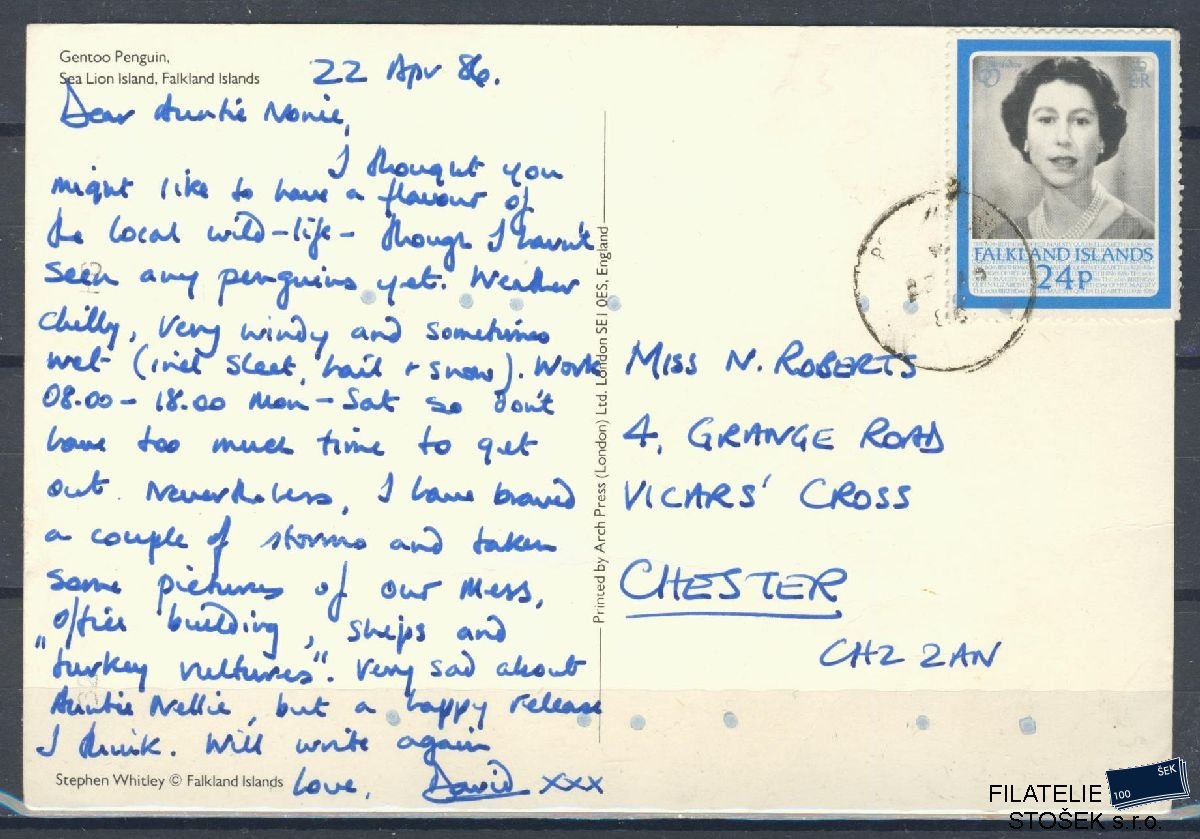 Gentoo Penguin,
Sea Lion Island, Falkland Islands
22 Apr 86.
Dear Auntie Nonie,
I thought you
might like to have a flavour of
the local wild-life - though I haven't
seen any penguins yet. Weather
chilly, very windy and sometimes
wet (incl sleet, hail + snow). Work
08.00 - 18.00 Mon - Sat so don't
have too much time to get
out. Nevertheless, I have braved
a couple of storms and taken
some pictures of our Mess,
office building, ships and
"turkey vultures". Very sad about
Auntie Nellie, but a happy release
I think. Will write again
Love, David xxx
Stephen Whitley © Falkland Islands
Printed by Arch Press (London) Ltd. London SE1 0ES, England
FALKLAND ISLANDS
24P
MISS N. ROBERTS
4, GRANGE ROAD
VICARS' CROSS
CHESTER
CH2 2AN
FILATELIE
STOŠEK s.r.o.
100 ŠEK